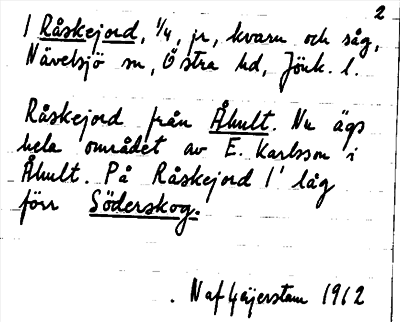 2
1 Råskejord, 1/4, jr, kvarn och såg,
Nävelsjö sn, Östra hd, Jönk. l.
Råskejord från Åhult. Nu ägs
hela området av E. Karlsson i
Åhult. På Råskejord 1' låg
förr Söderskog.
N af Geijerstam 1912